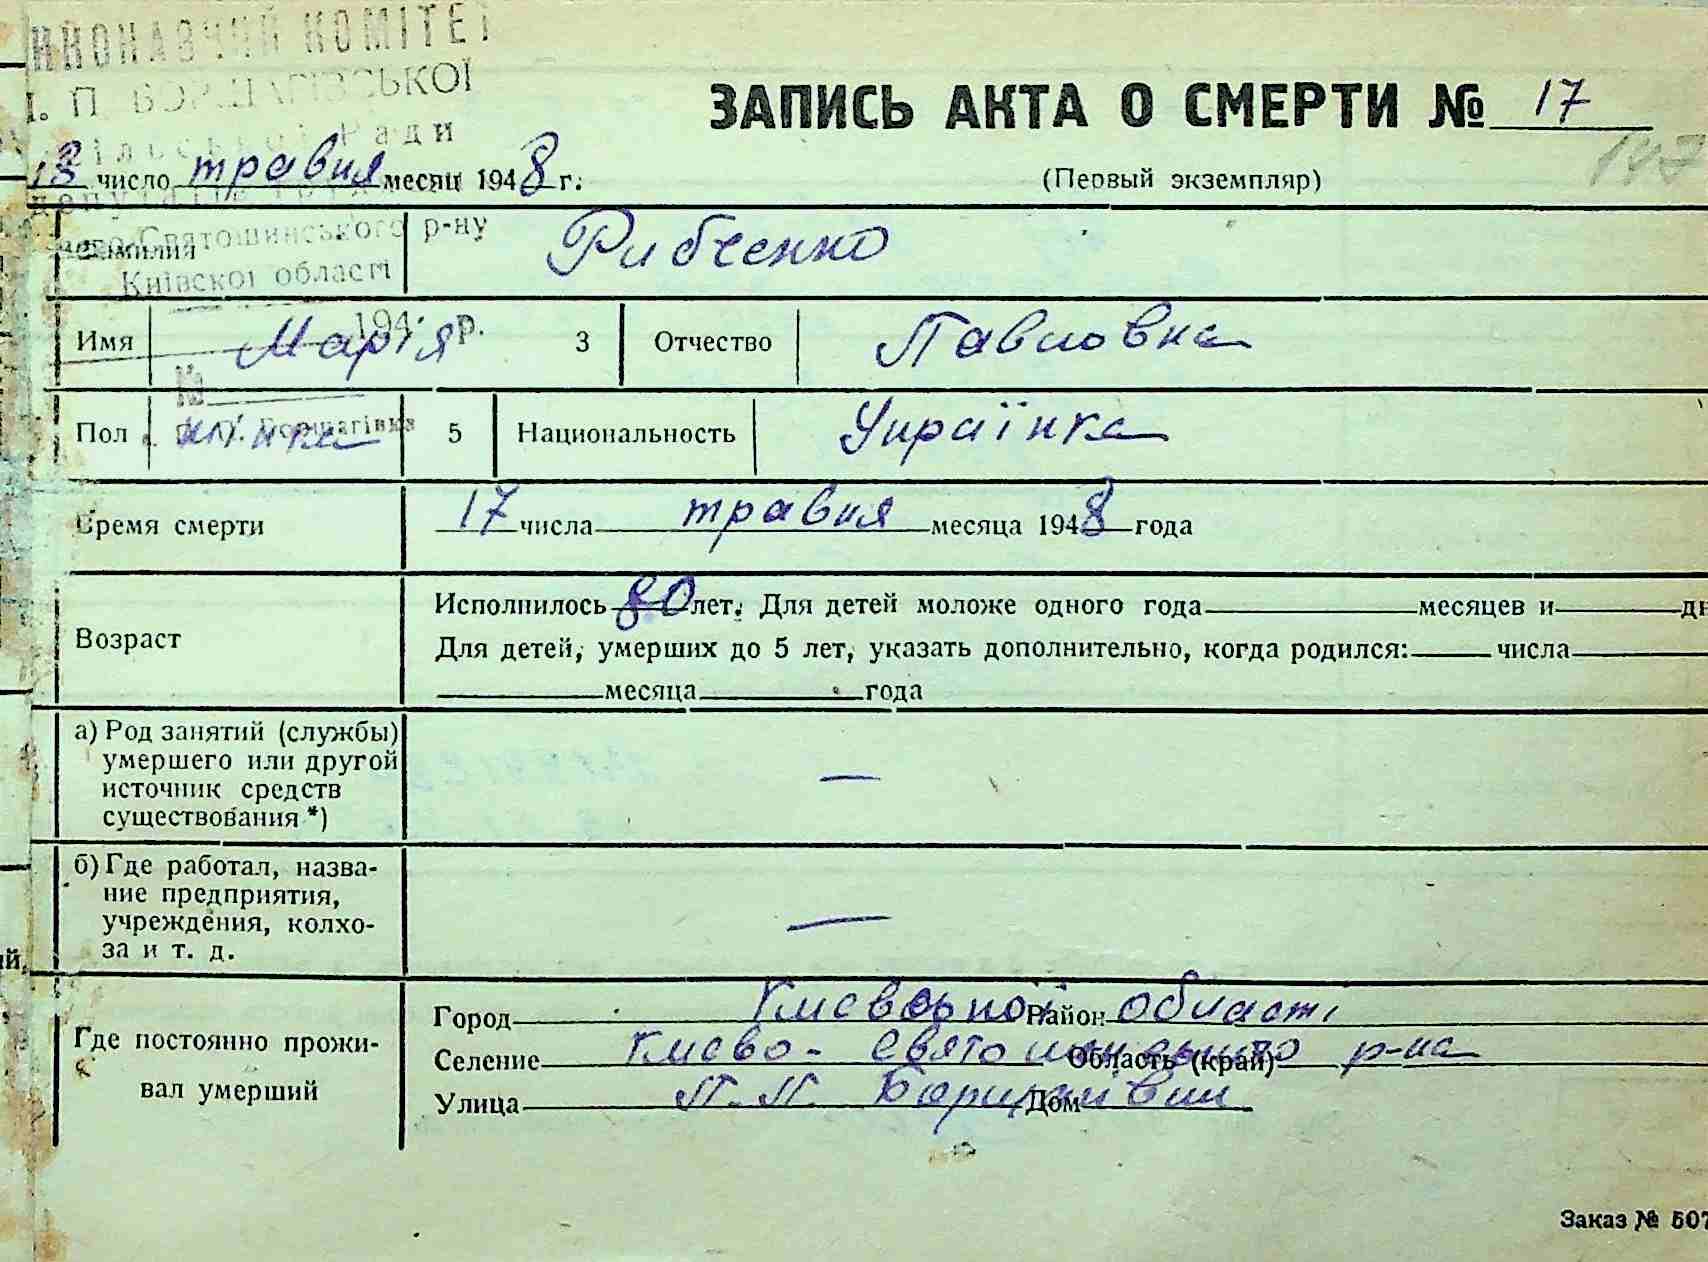 ИКОНАВЧИЙ КОМІТЕТ
П. БОРЩАГІВСЬКОЇ
Ради
ЗАПИСЬ АКТА О СМЕРТИ № 17
147
число травня месяц 1948 г.
(Первый экземпляр)
Святошинського р-ну
Київської області
Фамилия Рибченко
194 р.
Имя Марія 3 Отчество Павловна
№
Борщагівка
Пол жінка 5 Национальность Українка
Время смерти 17 числа травня месяца 1948 года
Возраст
Исполнилось 80 лет. Для детей моложе одного года месяцев и
Для детей, умерших до 5 лет, указать дополнительно, когда родился: числа
месяца года
а) Род занятий (службы)
умершего или другой
источник средств
существования *) —
б) Где работал, назва-
ние предприятия,
учреждения, колхо-
за и т. д. —
Где постоянно прожи-
вал умерший
Город Киевської Район области
Селение Киево-Святошинського Область (край) р-на
Улица П.П. Борщагівки Дом
Заказ № 507